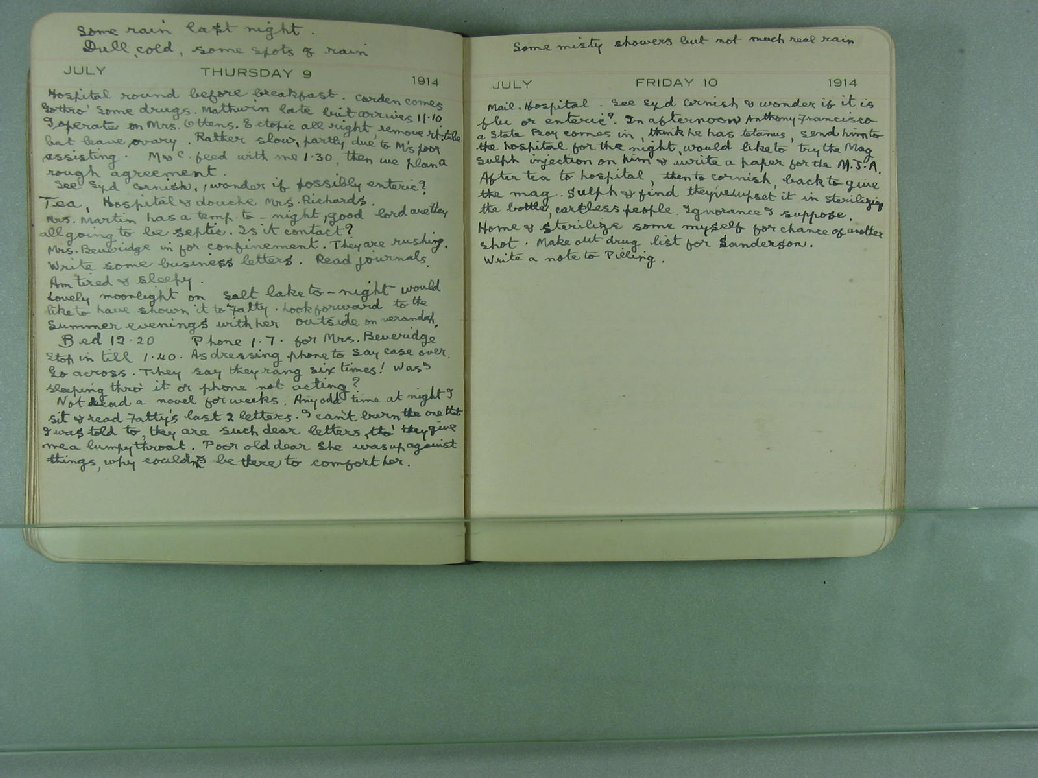 Some rain last night.
Dull, cold, some spots of rain
JULY THURSDAY 9 1914
Hospital round before breakfast. Corden comes
some drugs. Mathwin late but arrives 11.10
I operate on Mrs. Ottens. Ectopic all right remove rt. tube
but leave ovary. Rather slow, partly due to M's poor
assisting. M & C. feed with me 1.30, then we plan a
rough agreement.
See Syd Cornish, wonder if possibly enteric?
Tea, Hospital & douche Mrs. Richards.
Mrs. Martin has a temp to-night, good lord are they
all going to be septic. Is it contact?
Mrs. Beveridge in for confinement. They are rushing.
Write some business letters. Read journals.
Am tired & sleepy.
Lovely moonlight on Salt lake to-night would
like to have shown it to Fatty. Look forward to the
Summer evenings with her outside on verandah.
Bed 12.20 Phone 1.7. for Mrs. Beveridge
Stop in till 1.40. As dressing phone to say case over.
Go across. They say they rang six times! Was I
sleeping thro' it or phone not acting?
Not read a novel for weeks. Any odd time at night I
sit & read Fatty's last 2 letters. I can't burn the one that
I was told to, they are such dear letters, tho' they give
me a lumpy throat. Poor old dear she was up against
things, why couldn't I be there to comfort her.
Some misty showers but not much real rain
JULY FRIDAY 10 1914
Mail. Hospital. See Syd Cornish & wonder if it is
flu or enteric? In afternoon Anthony Francisco
a State Boy comes in, think he has tetanus, send him to
the hospital for the night, would like to try the Mag
Sulph injection on him & write a paper for the M.J.A.
After tea to hospital, then to Cornish, back to give
the mag. Sulph & find they've upset it in sterilizing
the bottle, careless people. Ignorance I suppose.
Home & sterilize some myself for chance of another
shot. Make out drug list for Sanderson.
Write a note to Pilling.